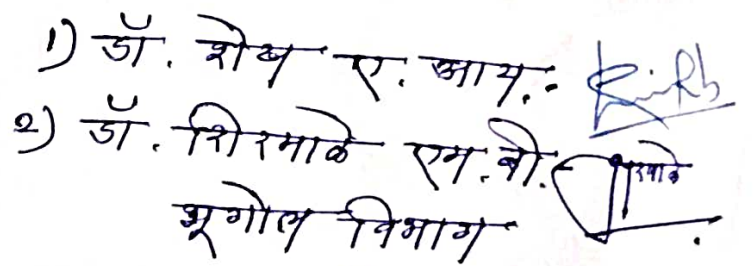 1) डॉ. शेख ए. आय.
2) डॉ. शिरमाळे एम. बी.
भूगोल विभाग